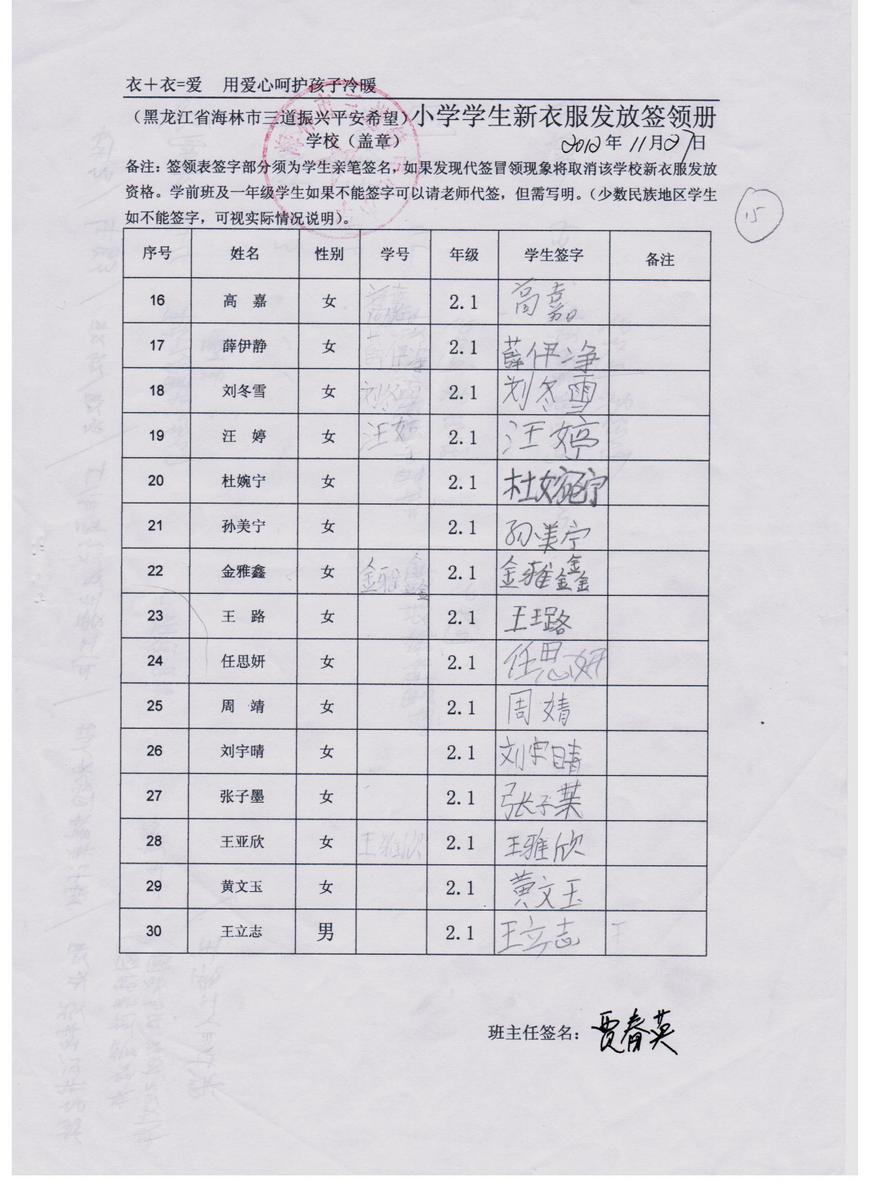 衣＋衣=爱 用爱心呵护孩子冷暖
（黑龙江省海林市三道振兴平安希望）小学学生新衣服发放签领册
学校（盖章） 2012年 11月27日
备注：签领表签字部分须为学生亲笔签名，如果发现代签冒领现象将取消该学校新衣服发放
资格。学前班及一年级学生如果不能签字可以请老师代签，但需写明。（少数民族地区学生
如不能签字，可视实际情况说明）。
15
序号 姓名 性别 学号 年级 学生签字 备注
16 高 嘉 女 2.1 高嘉
17 薛伊静 女 2.1 薛伊净
18 刘冬雪 女 刘冬雪 2.1 刘冬雪
19 汪 婷 女 汪婷 2.1 汪婷
20 杜婉宁 女 2.1 杜婉宁
21 孙美宁 女 2.1 孙美宁
22 金雅鑫 女 金雅鑫 2.1 金雅鑫
23 王 路 女 2.1 王璐
24 任思妍 女 2.1 任思妍
25 周 靖 女 2.1 周婧
26 刘宇晴 女 2.1 刘宇晴
27 张子墨 女 2.1 张子葉
28 王亚欣 女 王雅欣 2.1 王雅欣
29 黄文玉 女 2.1 黄文玉
30 王立志 男 2.1 王立志 王
班主任签名：贾春英